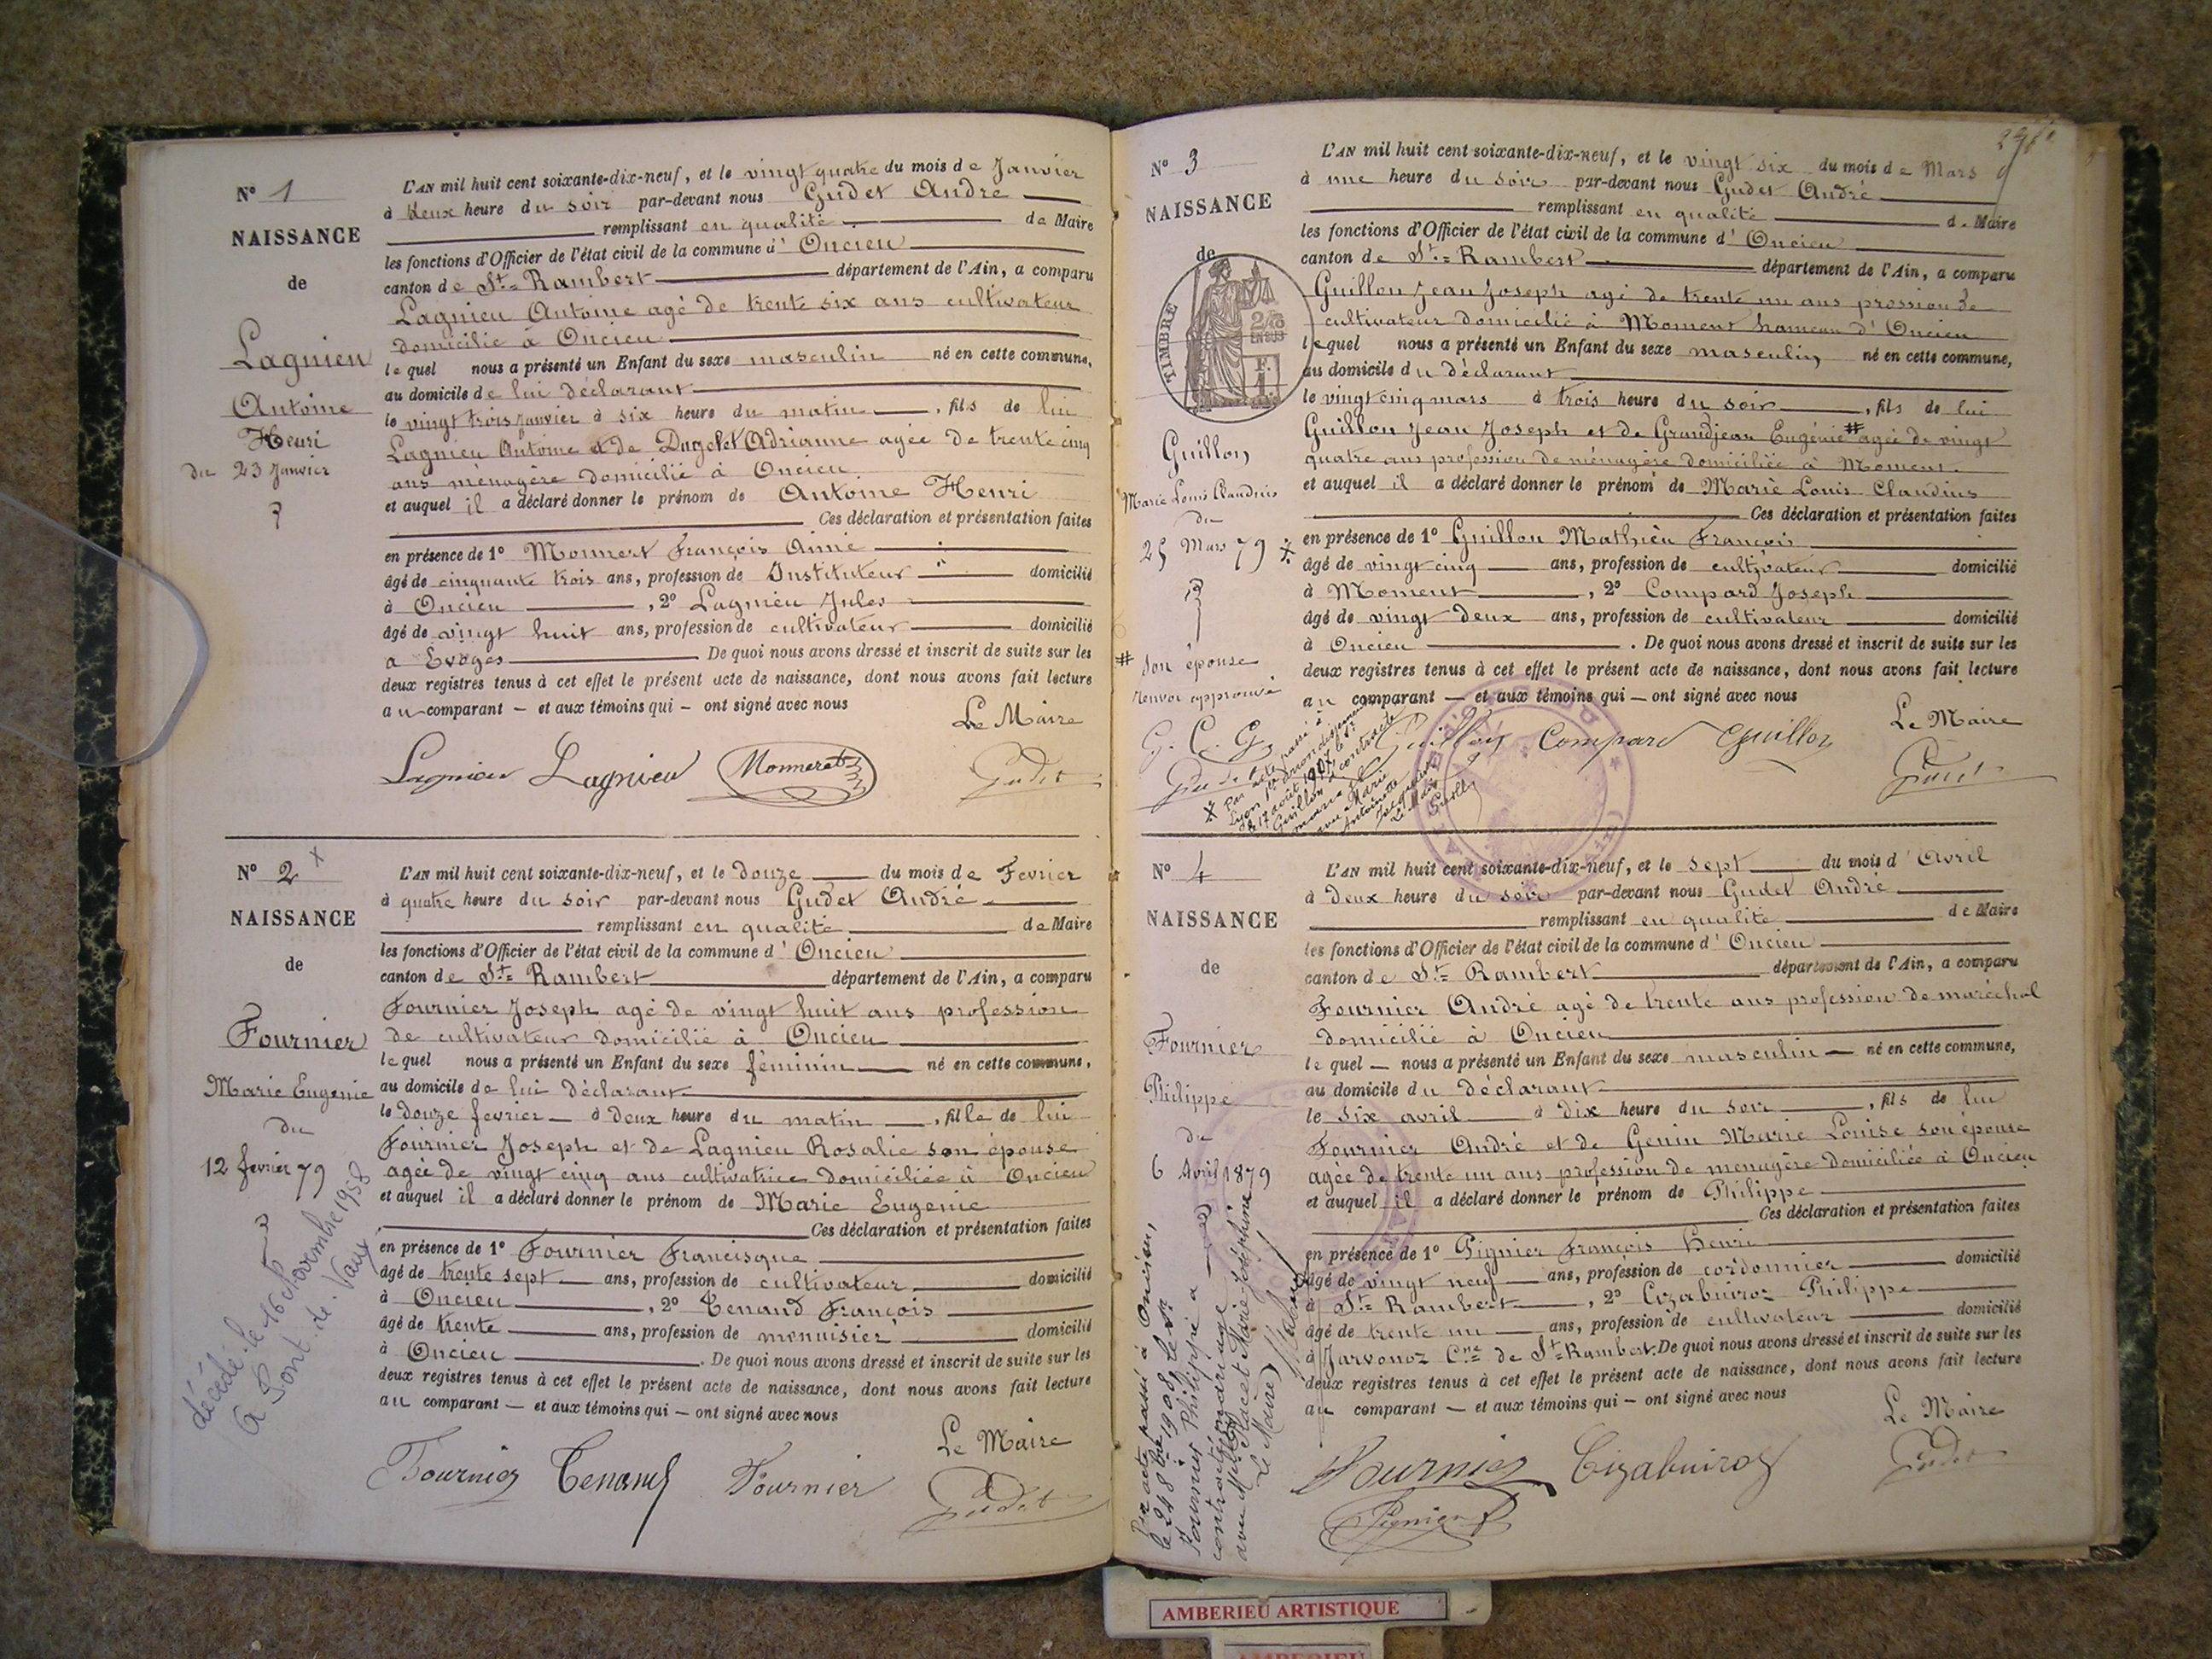 N° 1
NAISSANCE
de
Lagnieu
Antoine
Henri
du 23 Janvier
L'AN mil huit cent soixante-dix-neuf, et le vingt quatre du mois de Janvier
à deux heure du soir par-devant nous Gudet André
remplissant en qualité de Maire
les fonctions d'Officier de l'état civil de la commune d'Oncieu
canton de St= Rambert département de l'Ain, a comparu
Lagnieu Antoine agé de trente six ans cultivateur
domicilié à Oncieu
lequel nous a présenté un Enfant du sexe masculin né en cette commune,
au domicile de lui déclarant
le vingt trois Janvier à six heure du matin, fils de lui
Lagnieu Antoine et de Adrianne agée de trente cinq
ans ménagère domicilié à Oncieu
et auquel il a déclaré donner le prénom de Antoine Henri
Ces déclaration et présentation faites
en présence de 1° Monneret François Aimé
âgé de cinquante trois ans, profession de Instituteur domicilié
à Oncieu, 2° Lagnieu Jules
âgé de vingt huit ans, profession de cultivateur domicilié
a Evoges De quoi nous avons dressé et inscrit de suite sur les
deux registres tenus à cet effet le présent acte de naissance, dont nous avons fait lecture
au comparant — et aux témoins qui — ont signé avec nous
Le Maire
Lagnieu Lagnieu Monneret Gudet
N° 2 x
NAISSANCE
de
Fournier
Marie Eugenie
du
12 fevrier 79
décédé le 16 Novembre 1958
à Pont de Vaux
L'AN mil huit cent soixante-dix-neuf, et le douze du mois de Fevrier
à quatre heure du soir par-devant nous Gudet André
remplissant en qualité de Maire
les fonctions d'Officier de l'état civil de la commune d'Oncieu
canton de St= Rambert département de l'Ain, a comparu
Fournier Joseph agé de vingt huit ans profession
de cultivateur domicilié à Oncieu
lequel nous a présenté un Enfant du sexe féminin né en cette commune,
au domicile de lui déclarant
le douze fevrier à deux heure du matin, fille de lui
Fournier Joseph et de Lagnieu Rosalie son épouse
agée de vingt cinq ans cultivatrice domiciliée à Oncieu
et auquel il a déclaré donner le prénom de Marie Eugenie
Ces déclaration et présentation faites
en présence de 1° Fournier Francisque
âgé de trente sept ans, profession de cultivateur domicilié
à Oncieu, 2° Tenand François
âgé de trente ans, profession de menuisier domicilié
à Oncieu. De quoi nous avons dressé et inscrit de suite sur les
deux registres tenus à cet effet le présent acte de naissance, dont nous avons fait lecture
au comparant — et aux témoins qui — ont signé avec nous
Le Maire
Fournier Tenand Fournier Gudet
N° 3
NAISSANCE
de
TIMBRE
Guillon
Marie Louis Claudius
du
25 Mars 79
# son épouse
renvoi approuvé
G. C. G.
L'AN mil huit cent soixante-dix-neuf, et le vingt six du mois de Mars
à une heure du soir par-devant nous Gudet André
remplissant en qualité de Maire
les fonctions d'Officier de l'état civil de la commune d'Oncieu
canton de St= Rambert département de l'Ain, a comparu
Guillon Jean Joseph agé de trente un ans prossion de
cultivateur domicilié à Moment hameau d'Oncieu
lequel nous a présenté un Enfant du sexe masculin né en cette commune,
au domicile du déclarant
le vingt cinq mars à trois heure du soir, fils de lui
Guillon Jean Joseph et de Grandjean Eugénie # agée de vingt
quatre ans profession de ménagère domiciliée à Moment
et auquel il a déclaré donner le prénom de Marie Louis Claudius
Ces déclaration et présentation faites
en présence de 1° Guillon Mathieu François
âgé de vingt cinq ans, profession de cultivateur domicilié
à Moment, 2° Compard Joseph
âgé de vingt deux ans, profession de cultivateur domicilié
à Oncieu. De quoi nous avons dressé et inscrit de suite sur les
deux registres tenus à cet effet le présent acte de naissance, dont nous avons fait lecture
au comparant — et aux témoins qui — ont signé avec nous
Le Maire
Guillon Compard Guillon Gudet
Par acte passé à
Lyon 1er arrondissement
le 17 août 1907
Guillon a contracté
mariage
avec Marie
Antoinette
Le Maire
N° 4
NAISSANCE
de
Fournier
Philippe
du
6 Avril 1879
Par acte passé à Oncieu,
le 24 8bre 1908, le Sr
Fournier Philippe a
contracté mariage
avec Marie Joséphine
Le Maire
L'AN mil huit cent soixante-dix-neuf, et le sept du mois d'Avril
à deux heure du soir par-devant nous Gudet André
remplissant en qualité de Maire
les fonctions d'Officier de l'état civil de la commune d'Oncieu
canton de St= Rambert département de l'Ain, a comparu
Fournier André agé de trente ans profession de maréchal
domicilié à Oncieu
lequel — nous a présenté un Enfant du sexe masculin — né en cette commune,
au domicile du déclarant
le six avril à dix heure du soir, fils de lui
Fournier André et de Genin Marie Louise son épouse
agée de trente un ans profession de menagère domiciliée à Oncieu
et auquel il a déclaré donner le prénom de Philippe
Ces déclaration et présentation faites
en présence de 1° Pignier François Henri
âgé de vingt neuf ans, profession de cordonnier domicilié
à St= Rambert, 2° Cizabuiroz Philippe
âgé de trente un ans, profession de cultivateur domicilié
à Jarvonoz Cne de St= Rambert. De quoi nous avons dressé et inscrit de suite sur les
deux registres tenus à cet effet le présent acte de naissance, dont nous avons fait lecture
au comparant — et aux témoins qui — ont signé avec nous
Le Maire
Fournier Cizabuiroz Gudet
Pignier
AMBERIEU ARTISTIQUE
AMBERIEU